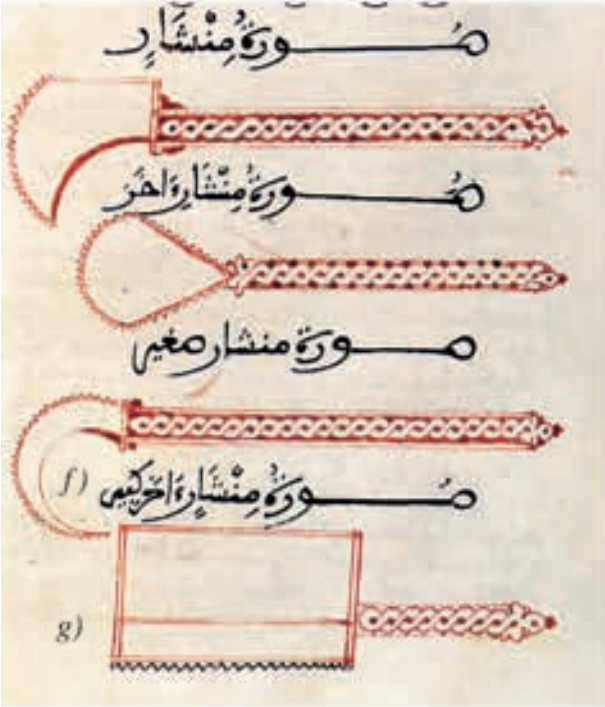 صُورَةُ مِنْشَارٍ
صُورَةُ مِنْشَارٍ اٰخَرَ
صورة منشار صغير
f) صُورَةُ مِنْشَارٍ اٰخَرَ كبير
g)